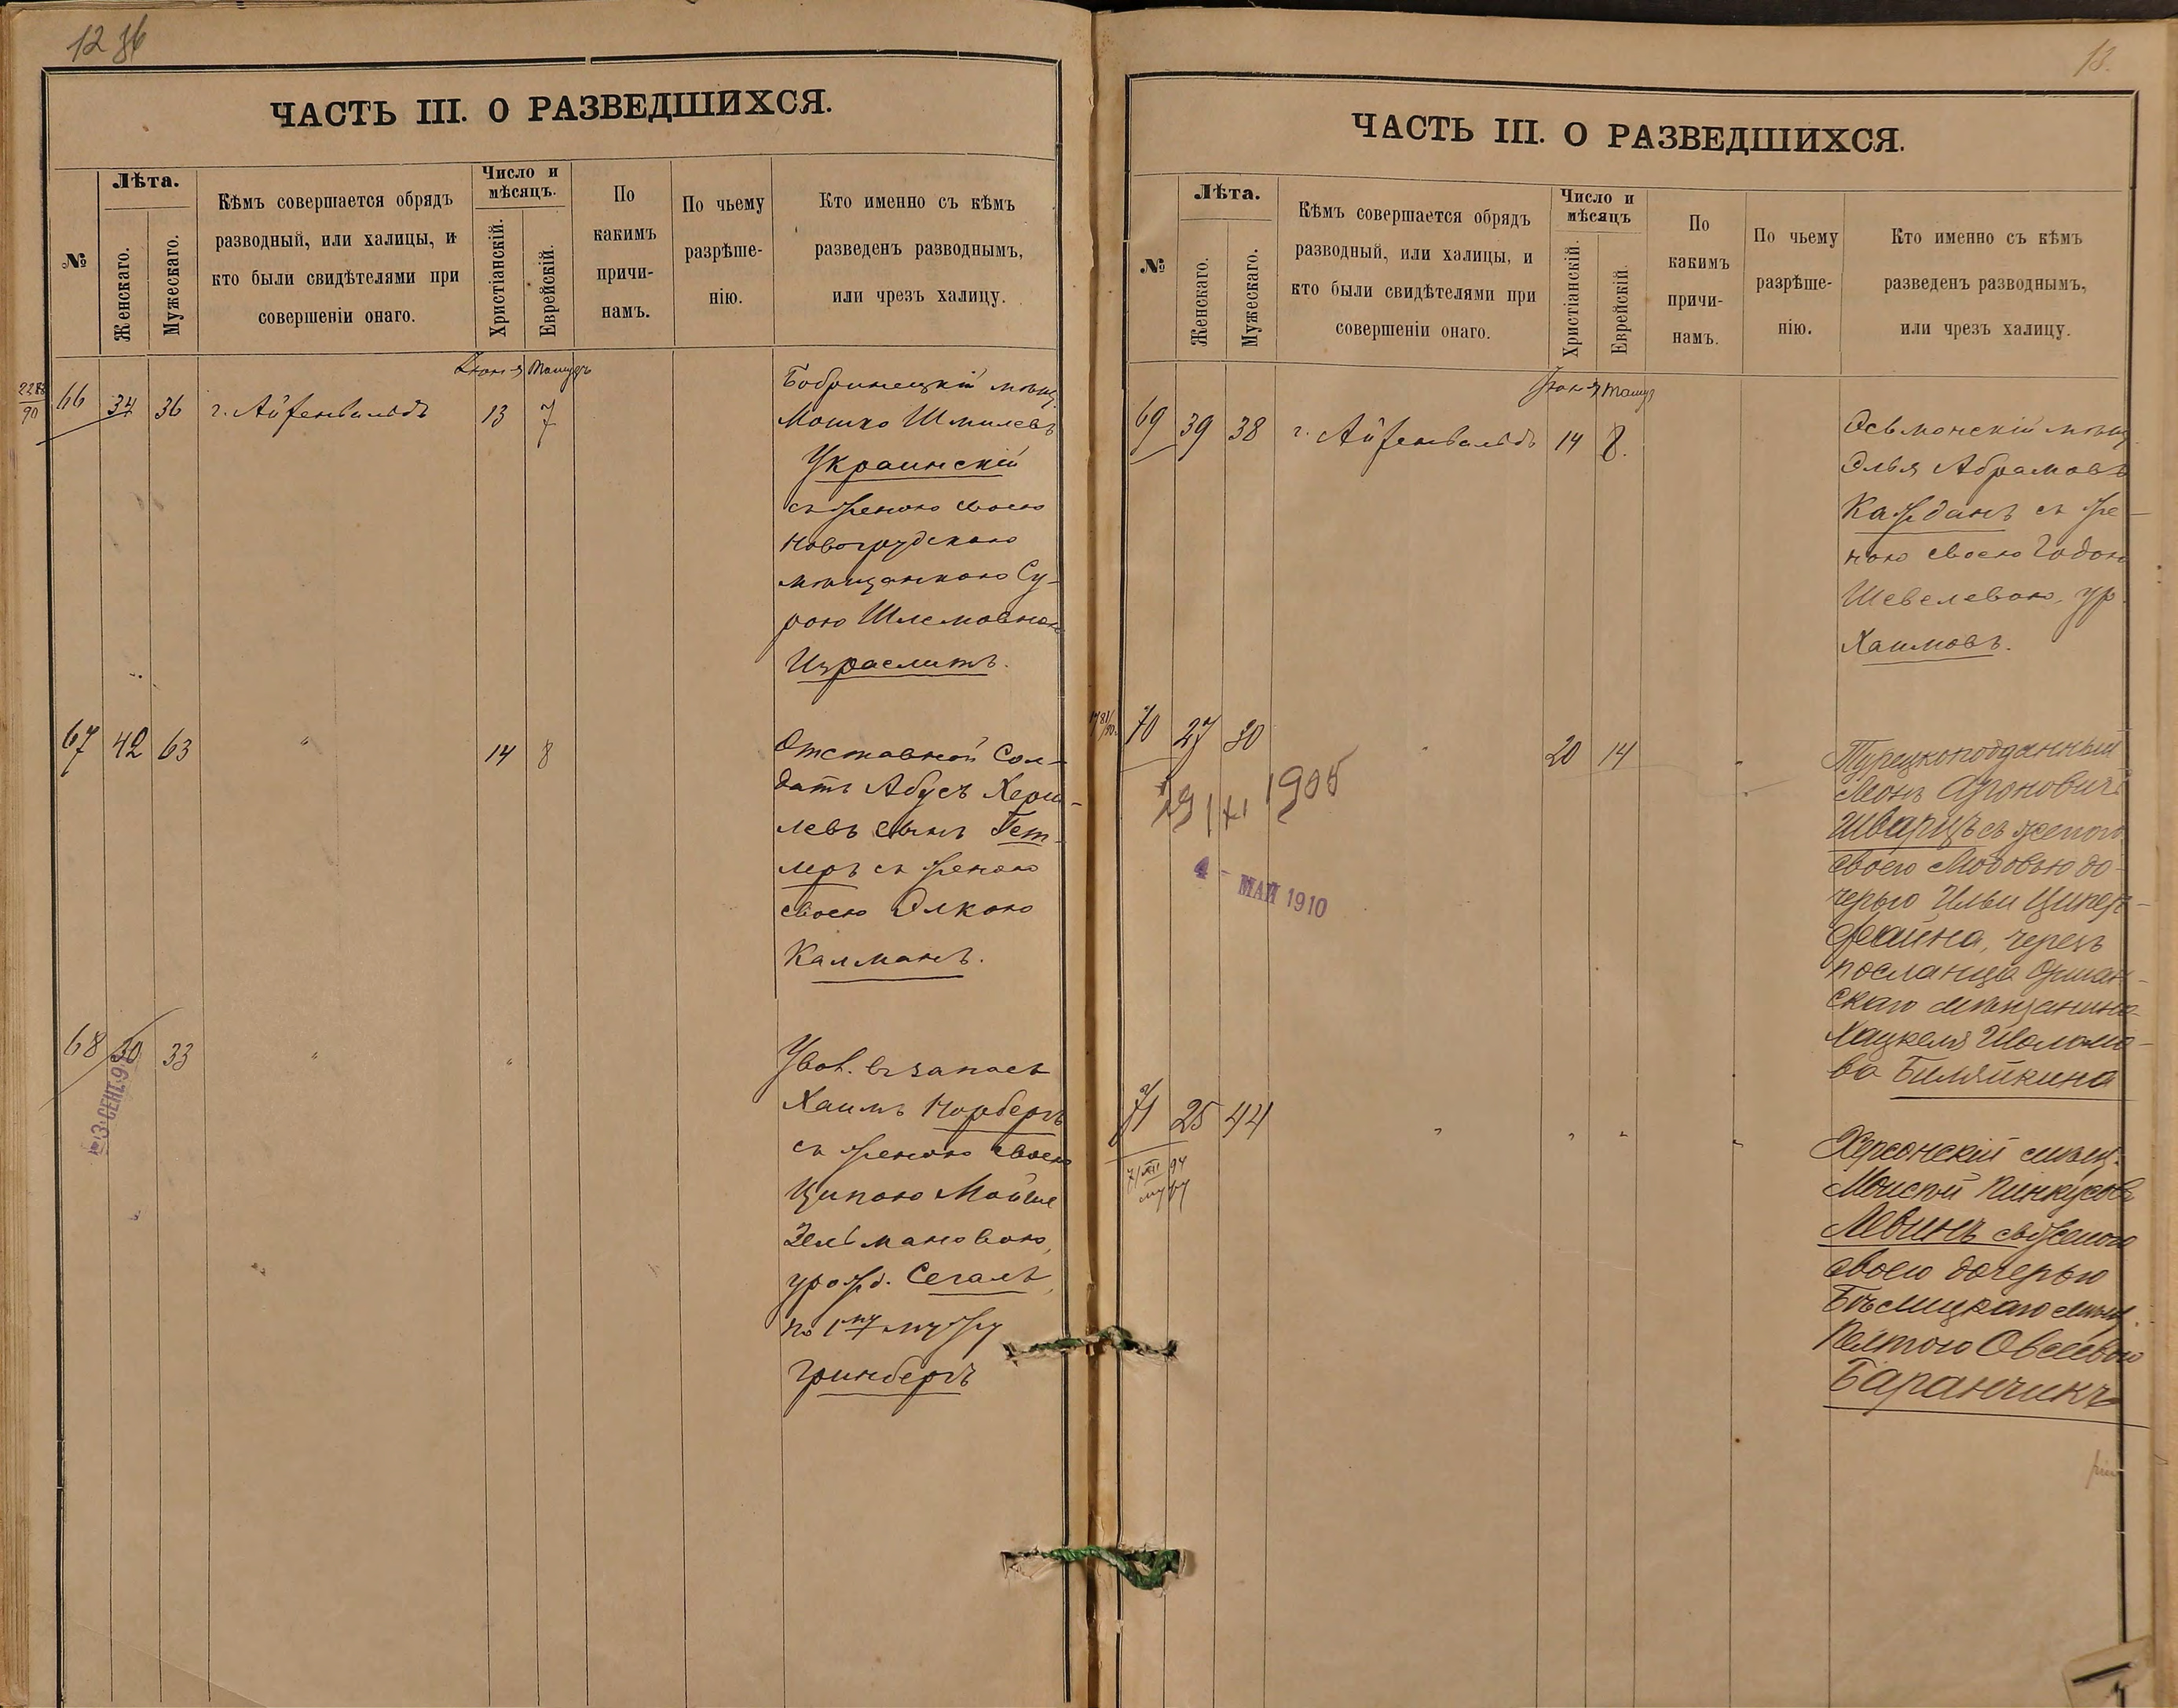 12 36
ЧАСТЬ III. О РАЗВЕДШИХСЯ.
№
Лѣта.
Женскаго.
Мужескаго.
Кѣмъ совершается обрядъ
разводный, или халицы, и
кто были свидѣтелями при
совершеніи онаго.
Число и
мѣсяцъ.
Христіанскій.
Еврейскій.
По
какимъ
причи-
намъ.
По чьему
разрѣше-
нію.
Кто именно съ кѣмъ
разведенъ разводнымъ,
или чрезъ халицу.
Іюня Тамузъ
66 34 36 г. Айзенвальдъ 13 7
Бобринецкій мѣщ.
Мошко Шмилевъ
Украинскій
съ женою своею
Новогрудскою
мѣщанкою Су-
рою Шлемовною
Израелитъ.
67 42 63 " 14 8
Отставной Сол-
датъ Абусъ Херш-
левъ сынъ Гет-
леръ съ женою
своею Элкою
Калманъ.
68 30 33 " "
3 СЕНТ. 9
Увол. въ запасъ
Хаимъ Норбергъ
съ женою своею
Ципою Мойше
Зельмановою,
урожд. Сегалъ,
по 1му мужу
Гринбергъ
18.
ЧАСТЬ III. О РАЗВЕДШИХСЯ.
№
Лѣта.
Женскаго.
Мужескаго.
Кѣмъ совершается обрядъ
разводный, или халицы, и
кто были свидѣтелями при
совершеніи онаго.
Число и
мѣсяцъ
Христіанскій.
Еврейскій.
По
какимъ
причи-
намъ.
По чьему
разрѣше-
нію.
Кто именно съ кѣмъ
разведенъ разводнымъ,
или чрезъ халицу.
Іюня Тамуз
69 39 38 г. Айзенвальдъ 14 8.
Осьмонскій мѣщ.
Элья Абрамовъ
Кажданъ съ же-
ною своею Годою
Шевелевою, ур.
Хаимовъ.
70 27 30 20 14
29/XI 1905
4 - МАЙ 1910
Турецкоподданный
Леонъ Ароновичъ
Шварцъ съ женою
своею Любовью до-
черью Ильи Ципер-
фейна, черезъ
посланца Оршан-
скаго мѣщанина
Хацкеля Шоломо-
ва Биляйкина
71 25 44 " " "
7/XII 94
Херсонскій мѣщ.
Моисей Пинкусовъ
Левинъ съ женою
своею дочерью
Бѣлицкаго мѣщ.
Пелтою Овсеевою
Баранчикъ